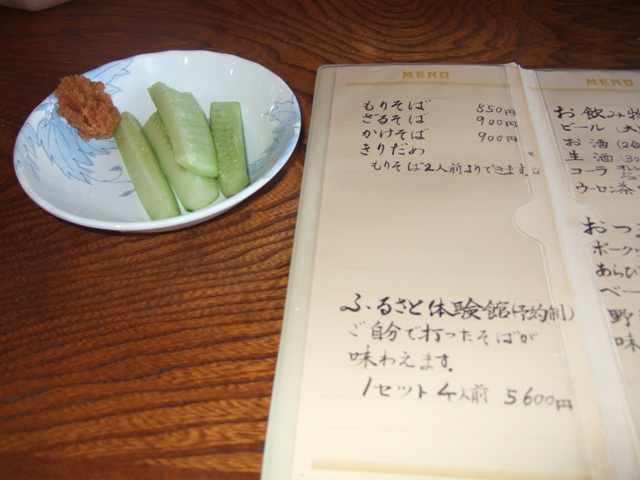 MENU
もりそば 850円
ざるそば 900円
かけそば 900円
きりだめ
もりそば2人前よりできます。
ふるさと体験館(予約制)
ご自分で打ったそばが
味わえます。
1セット 4人前 5600円
MENU
お飲み物
ビール(大
お酒(2合
生酒(30
コーラ
ウーロン茶
おつま
ポーク
あらび
ベー
野
味